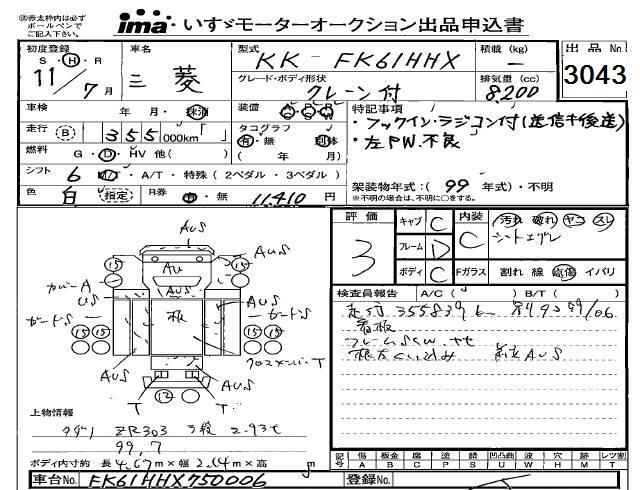 ※赤太枠内は必ずボールペンでご記入下さい。
ima いすゞモーターオークション出品申込書
初度登録 S・H・R 11/7月
車名 三菱
型式 KK-FK61HHX
積載(kg) —
出品No 3043
グレード・ボディ形状 クレーン付
排気量(cc) 8,200
車検 年 月・抹消
装備
特記事項
走行 B 355000km「 」
タコグラフ 有・無 別体
・フックイン・ラジコン付(送信キ後送)
燃料 G・D・HV 他( )
( 年 月)
・左PW.不良
シフト 6 M/T・A/T・特殊(2ペダル・3ペダル)
架装物年式:(99 年式)・不明
色 白 指定 R券 有・無 11,410円
※不明の場合は、不明に○をする。
評価 3
キャブ C
フレーム D
ボディ C
内装 C
汚れ 破れ ヤニ スレ
Fガラス 割れ 線 点傷 イバリ
検査員報告 A/C( ) B/T( )
走行 355839
看板
AUS
15 AU 15
カバーA
US AUS AUS
ガードS 板 ガードS
15 15 15 15
AUS AUS
クロスメンバーT
T T
12
上物情報
タダノ ZR303 3段 2.93t
99.7
ボディ内寸約 長4.67m×幅2.14m×高 m
記号 傷A 板金B 腐C 塗P 錆S 凹凸曲U 波W 穴H 跡M レツ割T
車台No. FK61HHX750006
登録No.